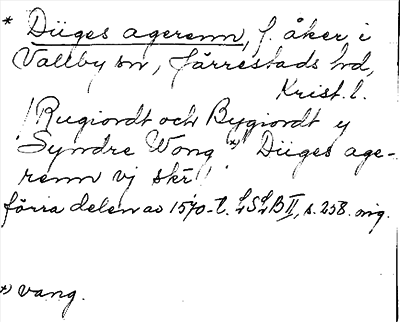 * Düges agerenn, f. åker i
Vallby sn, Järrestads hd,
Krist. l.
/Rugiordt och Bygiordt y
Syndre Wong *) Düges age-
renn vj skr/
förra delen av 1570-t. LSLB II, s. 258. orig.
*) vang.